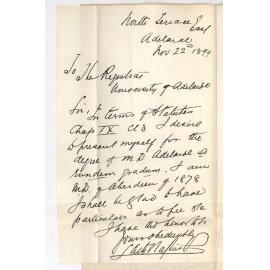 North Terrace E
Adelaide
Nov 22nd 1899
To The Registrar
University of Adelaide
Sir,
In terms of Statutes
Chap IX Cl 3 I desire
to present myself for the
degree of M.D. Adelaide ad
eundem gradum. I am
M.D. of Aberdeen of 1878
I shall be glad to have
particulars as to fee etc
I have the honor to be
yours obediently